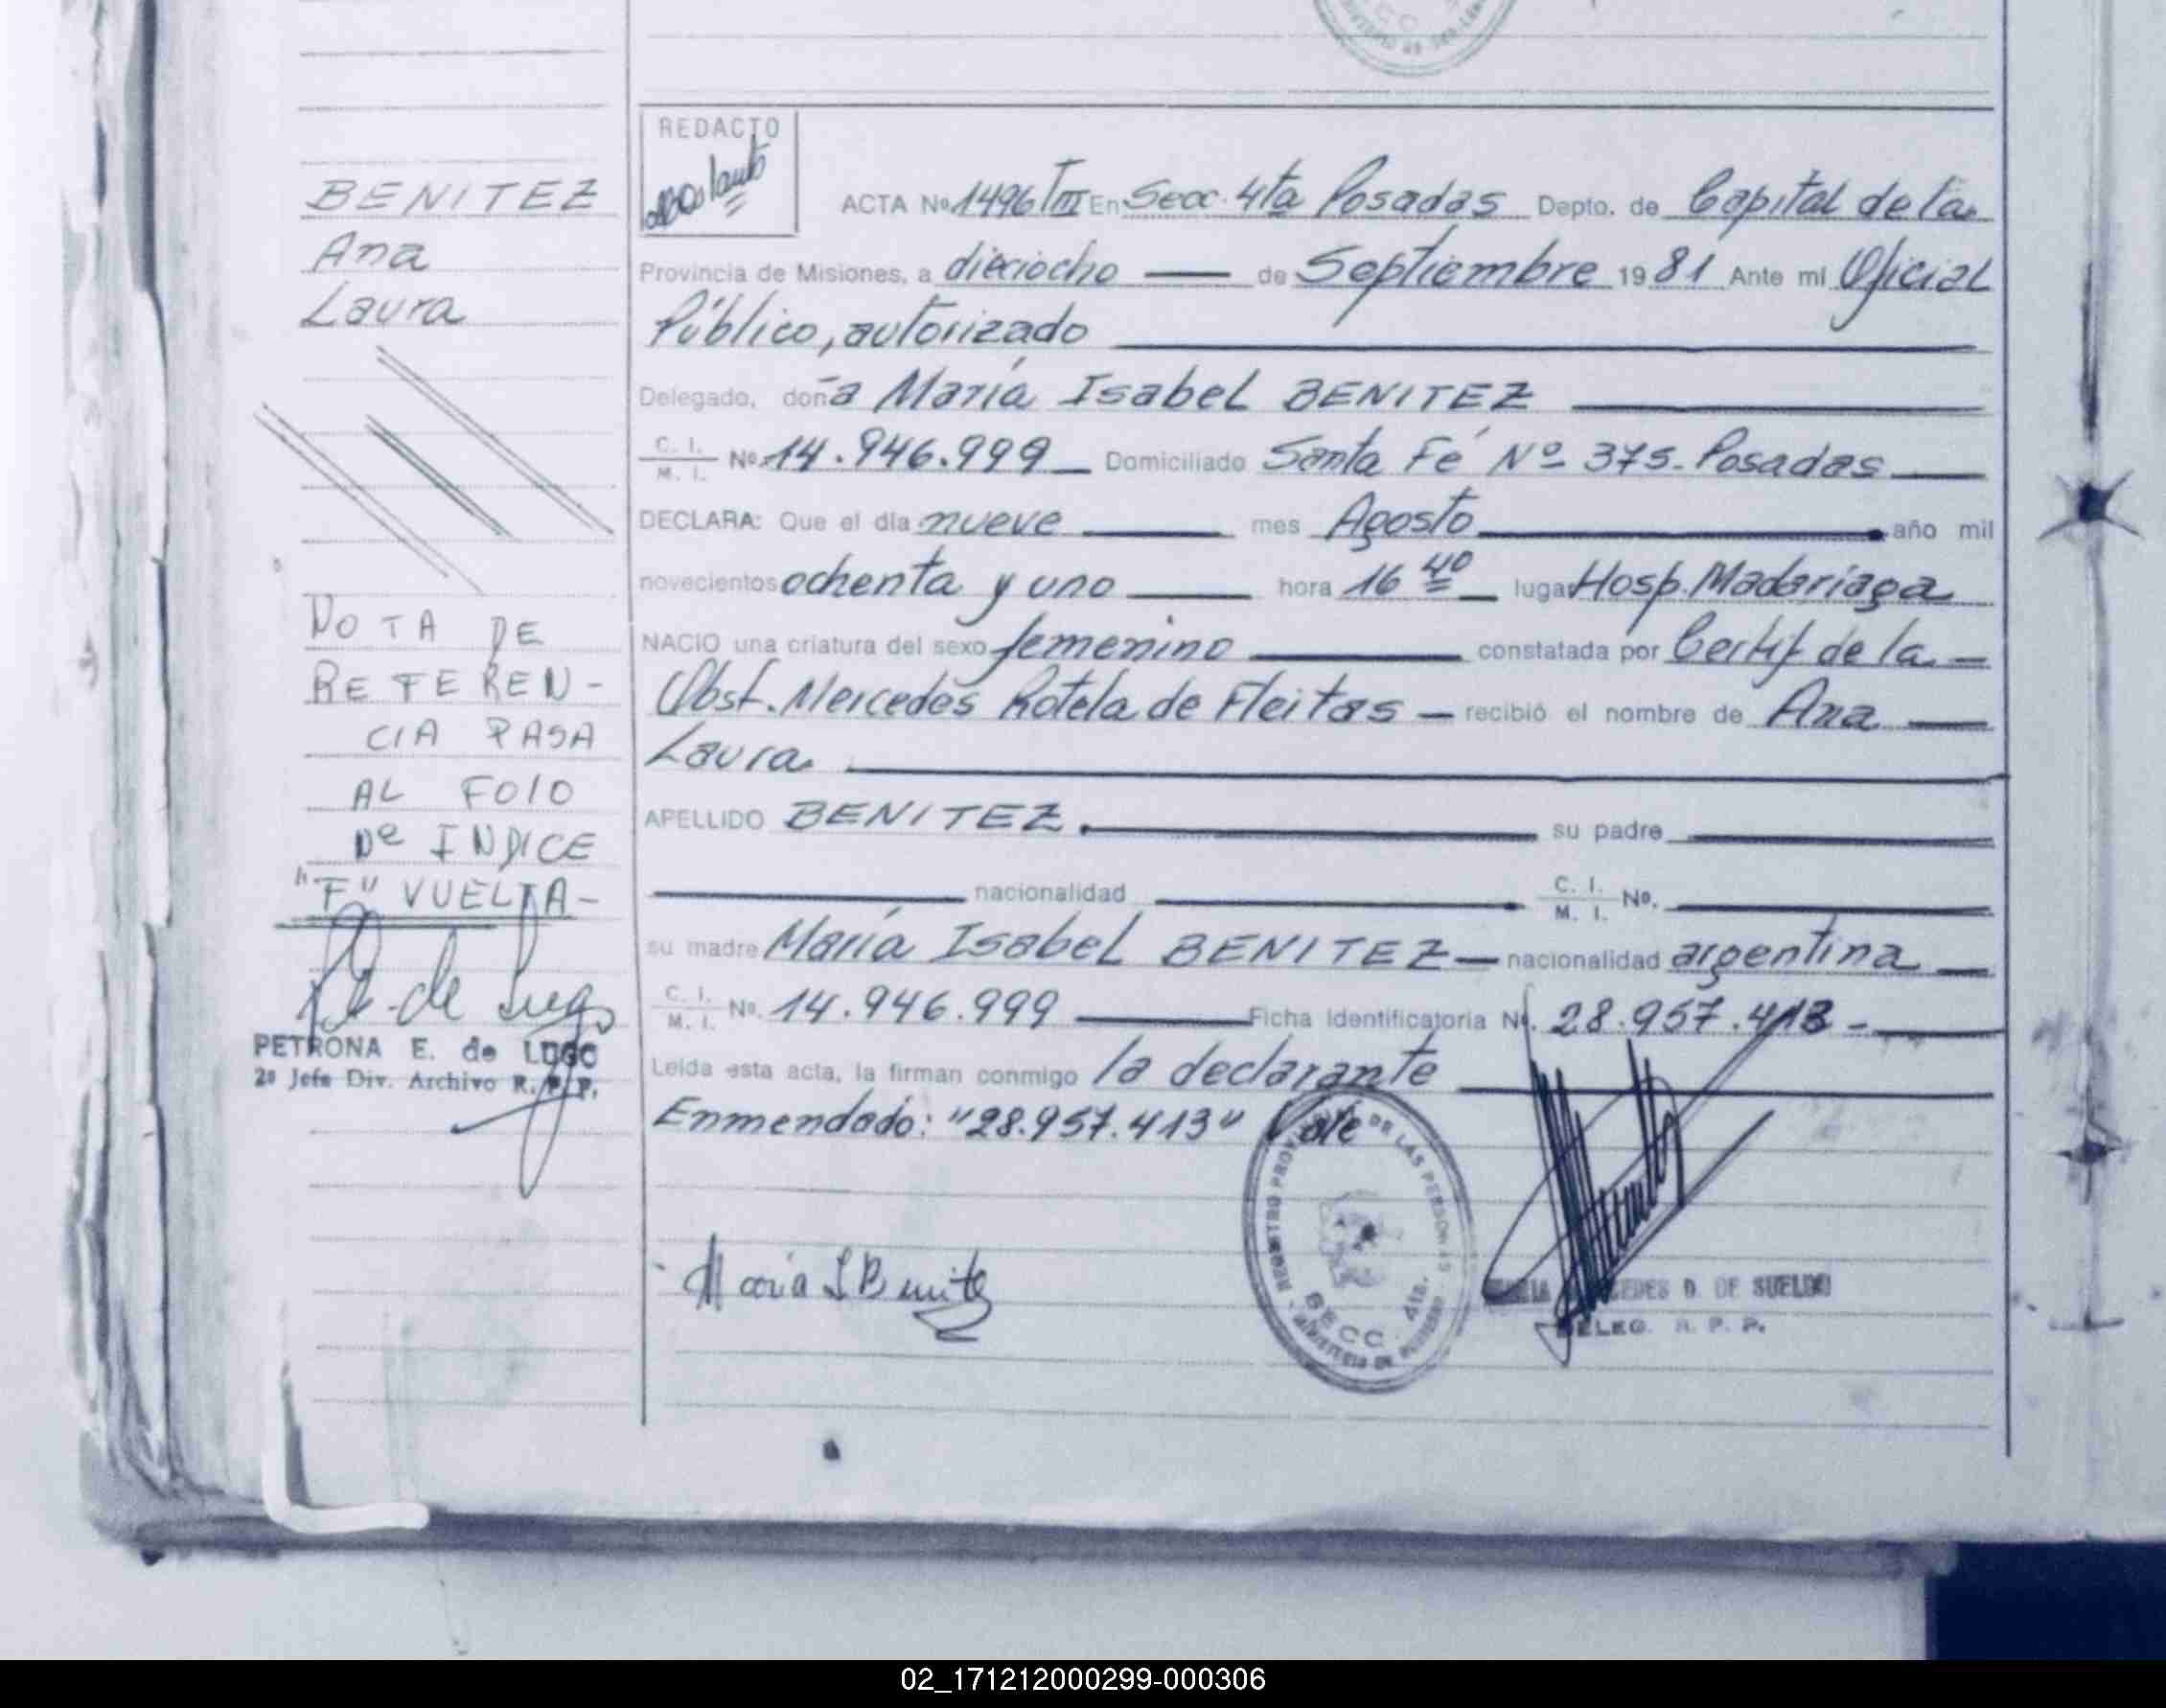 BENITEZ
Ana
Laura
NOTA DE
REFEREN-
CIA PASA
AL FOIO
De INDICE
"F" VUELTA-
PETRONA E. de LUGO
2º Jefe Div. Archivo R. P. P.
REDACTO
ACTA Nº 1496/TIII En Secc. 4ta Posadas Depto. de Capital de la
Provincia de Misiones, a dieciocho de Septiembre 1981 Ante mi Oficial
Público, autorizado
Delegado, doña María Isabel BENITEZ
C. I. / M. I. Nº 14.946.999 Domiciliado Santa Fé Nº 375. Posadas
DECLARA: Que el día nueve mes Agosto año mil
novecientos ochenta y uno hora 16 40 lugar Hosp. Madariaga
NACIO una criatura del sexo femenino constatada por Certif de la
Obst. Mercedes Rotela de Fleitas recibió el nombre de Ana
Laura
APELLIDO BENITEZ su padre
nacionalidad C. I. / M. I. Nº.
su madre María Isabel BENITEZ nacionalidad argentina
C. I. / M. I. Nº. 14.946.999 Ficha Identificatoria Nº. 28.957.413
Leída esta acta, la firman conmigo la declarante
Enmendado: "28.957.413" Vale
María I Benitez
SECC. 4ta.
D. DE SUELDO
DELEG. R. P. P.
02_171212000299-000306